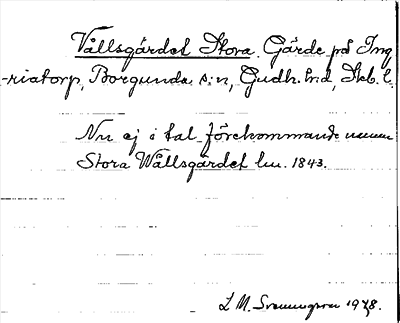 Vållsgärdet Stora. Gärde på Ing
-riatorp, Borgunda s:n, Gudh. hd, Skb. l.
Nu ej i tal förekommande namn
Stora Wållsgärdet lm. 1843.
L M. Svenungsson 1978.